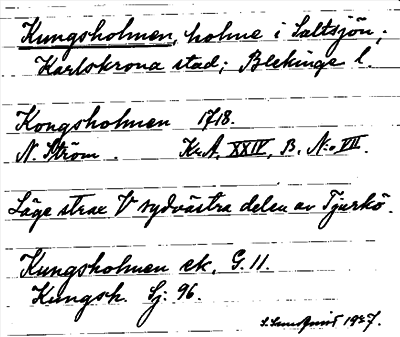 Kungsholmen, holme i Saltsjön,
Karlskrona stad; Blekinge l.
Kongsholmen 1718.
N. Ström. Kr.A. XXIV, B. N:o VII.
Läge strax V sydvästra delen av Tjurkö.
Kungsholmen ek. G. 11.
Kungsh. Sj: 96.
1927.